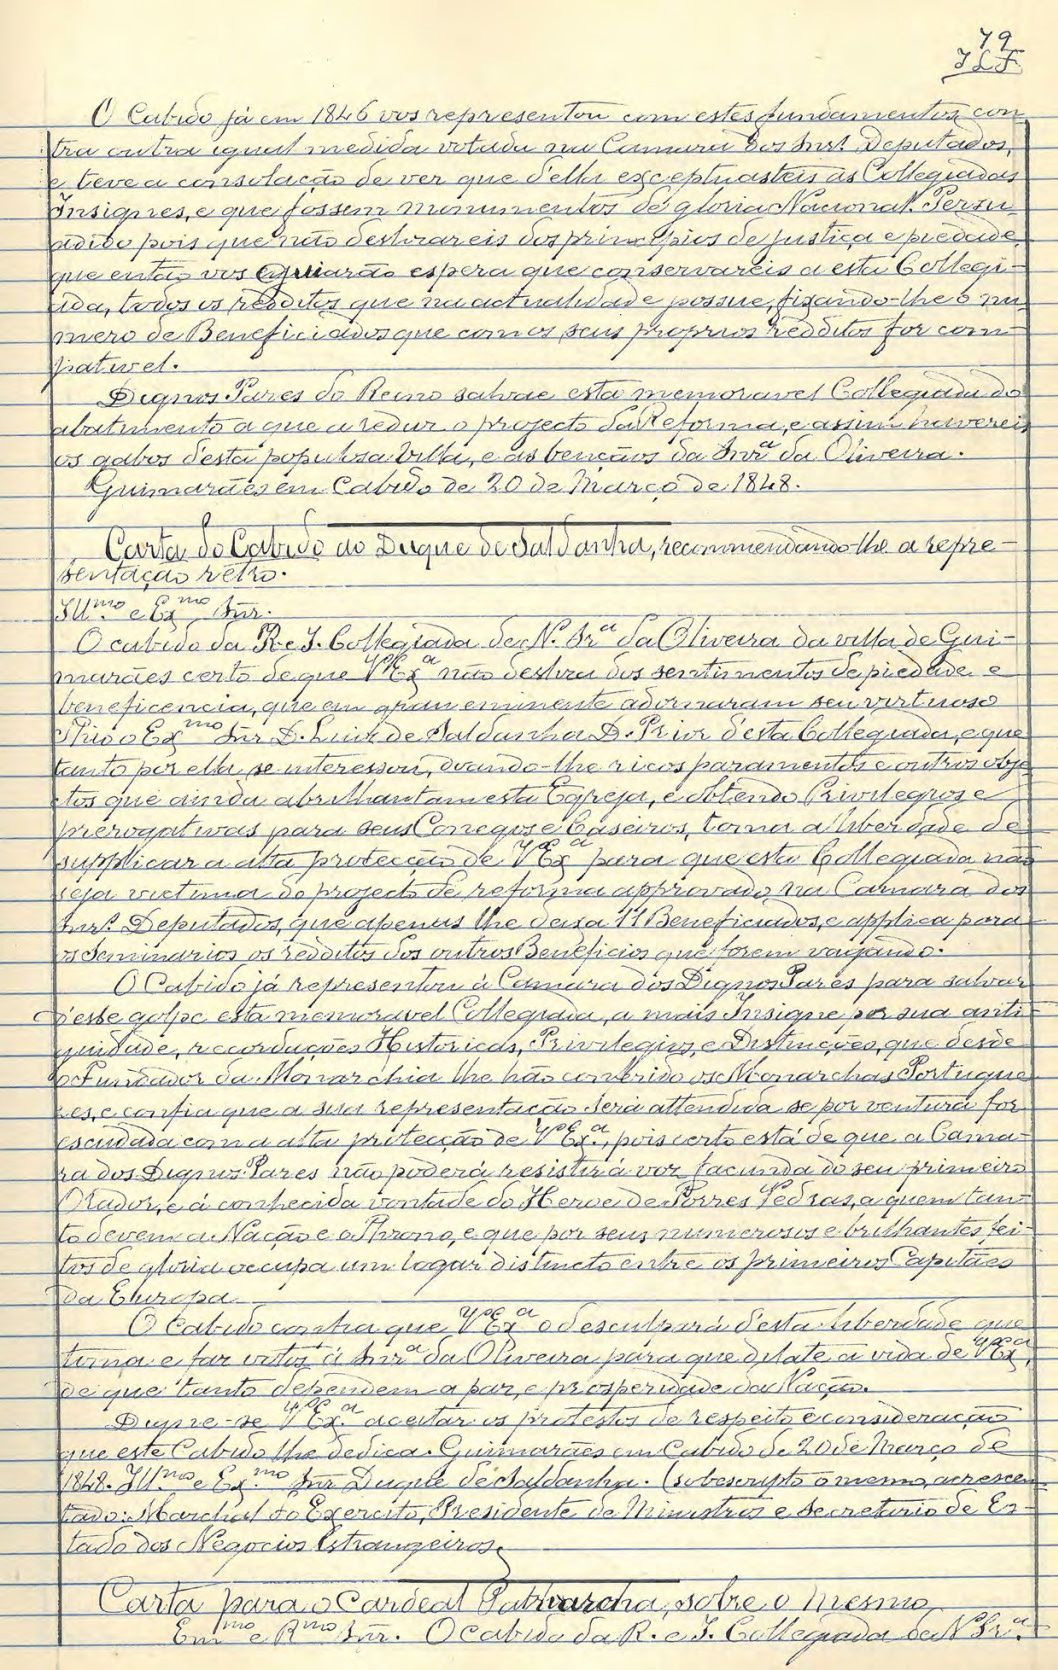 79
O Cabido já em 1846 vos representou com estes fundamentos con-
tra outra igual medida votada na Camara dos Snrs. Deputados,
e teve a consolação de ver que d'ella exceptuasteis as Collegiadas
Insignes, e que fossem monumentos de gloria Nacional. Persu-
adido pois que não deslizareis dos principios de justiça e piedade,
que então vos guiarão espera que conservareis a esta Collegi-
ada, todos os redditos que na actualidade possue, fixando-lhe o nu-
mero de Beneficiados que com os seus proprios redditos for com-
pativel.
Dignos Pares do Reino salvae esta memoravel Collegiada do
abatimento a que a reduz o projecto da Reforma, e assim havereis
os gabos d'esta populosa Villa, e as bençãos da Snrª da Oliveira.
Guimarães em Cabido de 20 de Março de 1848.
Carta do Cabido ao Duque de Saldanha, recommendando-lhe a repre-
sentação retro.
Illmo. e Exmo Snr.
O cabido da R. e I. Collegiada de N. Srª da Oliveira da villa de Gui-
marães certo de que Vª Exª não desliza dos sentimentos de piedade e
beneficencia, que em grau eminente adornaram seu virtuoso
Thio o Exmo Snr D. Luiz de Saldanha D. Prior d'esta Collegiada, e que
tanto por ella se interessou, doando-lhe ricos paramentos e outros obje-
tos que ainda abrilhantam esta Egreja, e obtendo Privilegios e
prerogativas para seus Conegos e Caseiros, toma a liberdade de
supplicar a alta protecção de Vª Exª para que esta Collegiada não
seja victima do projecto de reforma approvado na Camara dos
Snrs. Deputados, que apenas lhe deixa 11 Beneficiados, e applica para
os Seminarios os redditos dos outros Beneficios que forem vagando.
O Cabido já representou á Camara dos Dignos Pares para salvar
d'esse golpe esta memoravel Collegiada, a mais Insigne por sua anti-
guidade, recordações Historicas, Privilegios, e Distincções, que desde
o Fundador da Monarchia lhe hão conferido os Monarchas Portugue-
zes, e confia que a sua representação será attendida se por ventura for
escudada com a alta protecção de Vª Exª, pois certo está de que a Cama-
ra dos Dignos Pares não poderá resistir á voz facunda do seu primeiro
Orador, e á conhecida vontade do Heroe de Torres Vedras, a quem tan-
to devem a Nação e o Throno, e que por seus numerosos e brilhantes fei-
tos de gloria occupa um logar distincto entre os primeiros Capitães
da Europa.
O Cabido confia que Vª Exª o desculpará d'esta liberdade que
toma e faz votos á Snrª da Oliveira para que dilate a vida de Vª Exª,
de que tanto dependem a paz, e prosperidade da Nação.
Digne-se Vª Exª aceitar os protestos de respeito e consideração
que este Cabido lhe dedica. Guimarães em Cabido de 20 de Março de
1848. Illmo e Exmo Snr Duque de Saldanha. (sobescripto o mesmo, acrescen-
tado: Marchal do Exercito, Presidente de Ministros e Secretario de Es-
tado dos Negocios Estrangeiros.
Carta para o Cardeal Patriarcha, sobre o mesmo
Emmo e Rmo Snr. O cabido da R. e I. Collegiada de N. Srª.